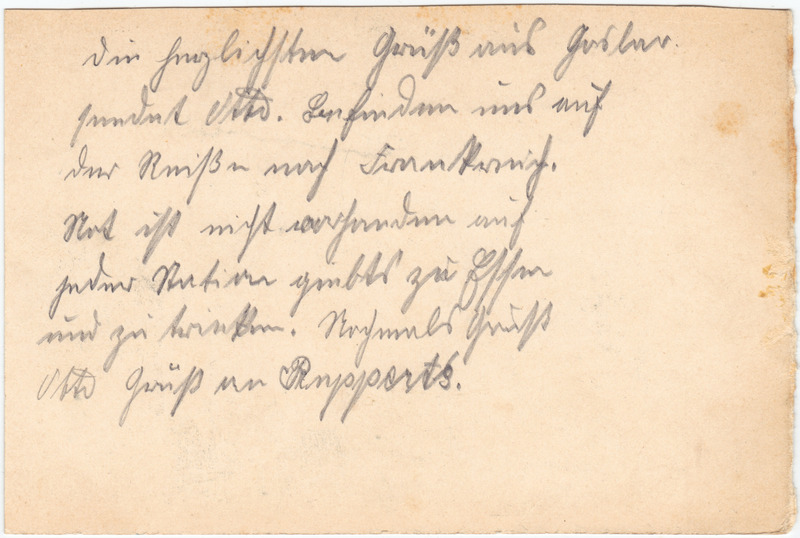 Die herzlichsten Grüß aus Goslar.
sendet Otto. Befinden uns auf
der Reiße nach Frankreich.
Not ist nicht vorhanden auf
jeder Station giebts zu Essen
und zu trinken. Nochmals Gruß
Otto Grüß an Rupperts.